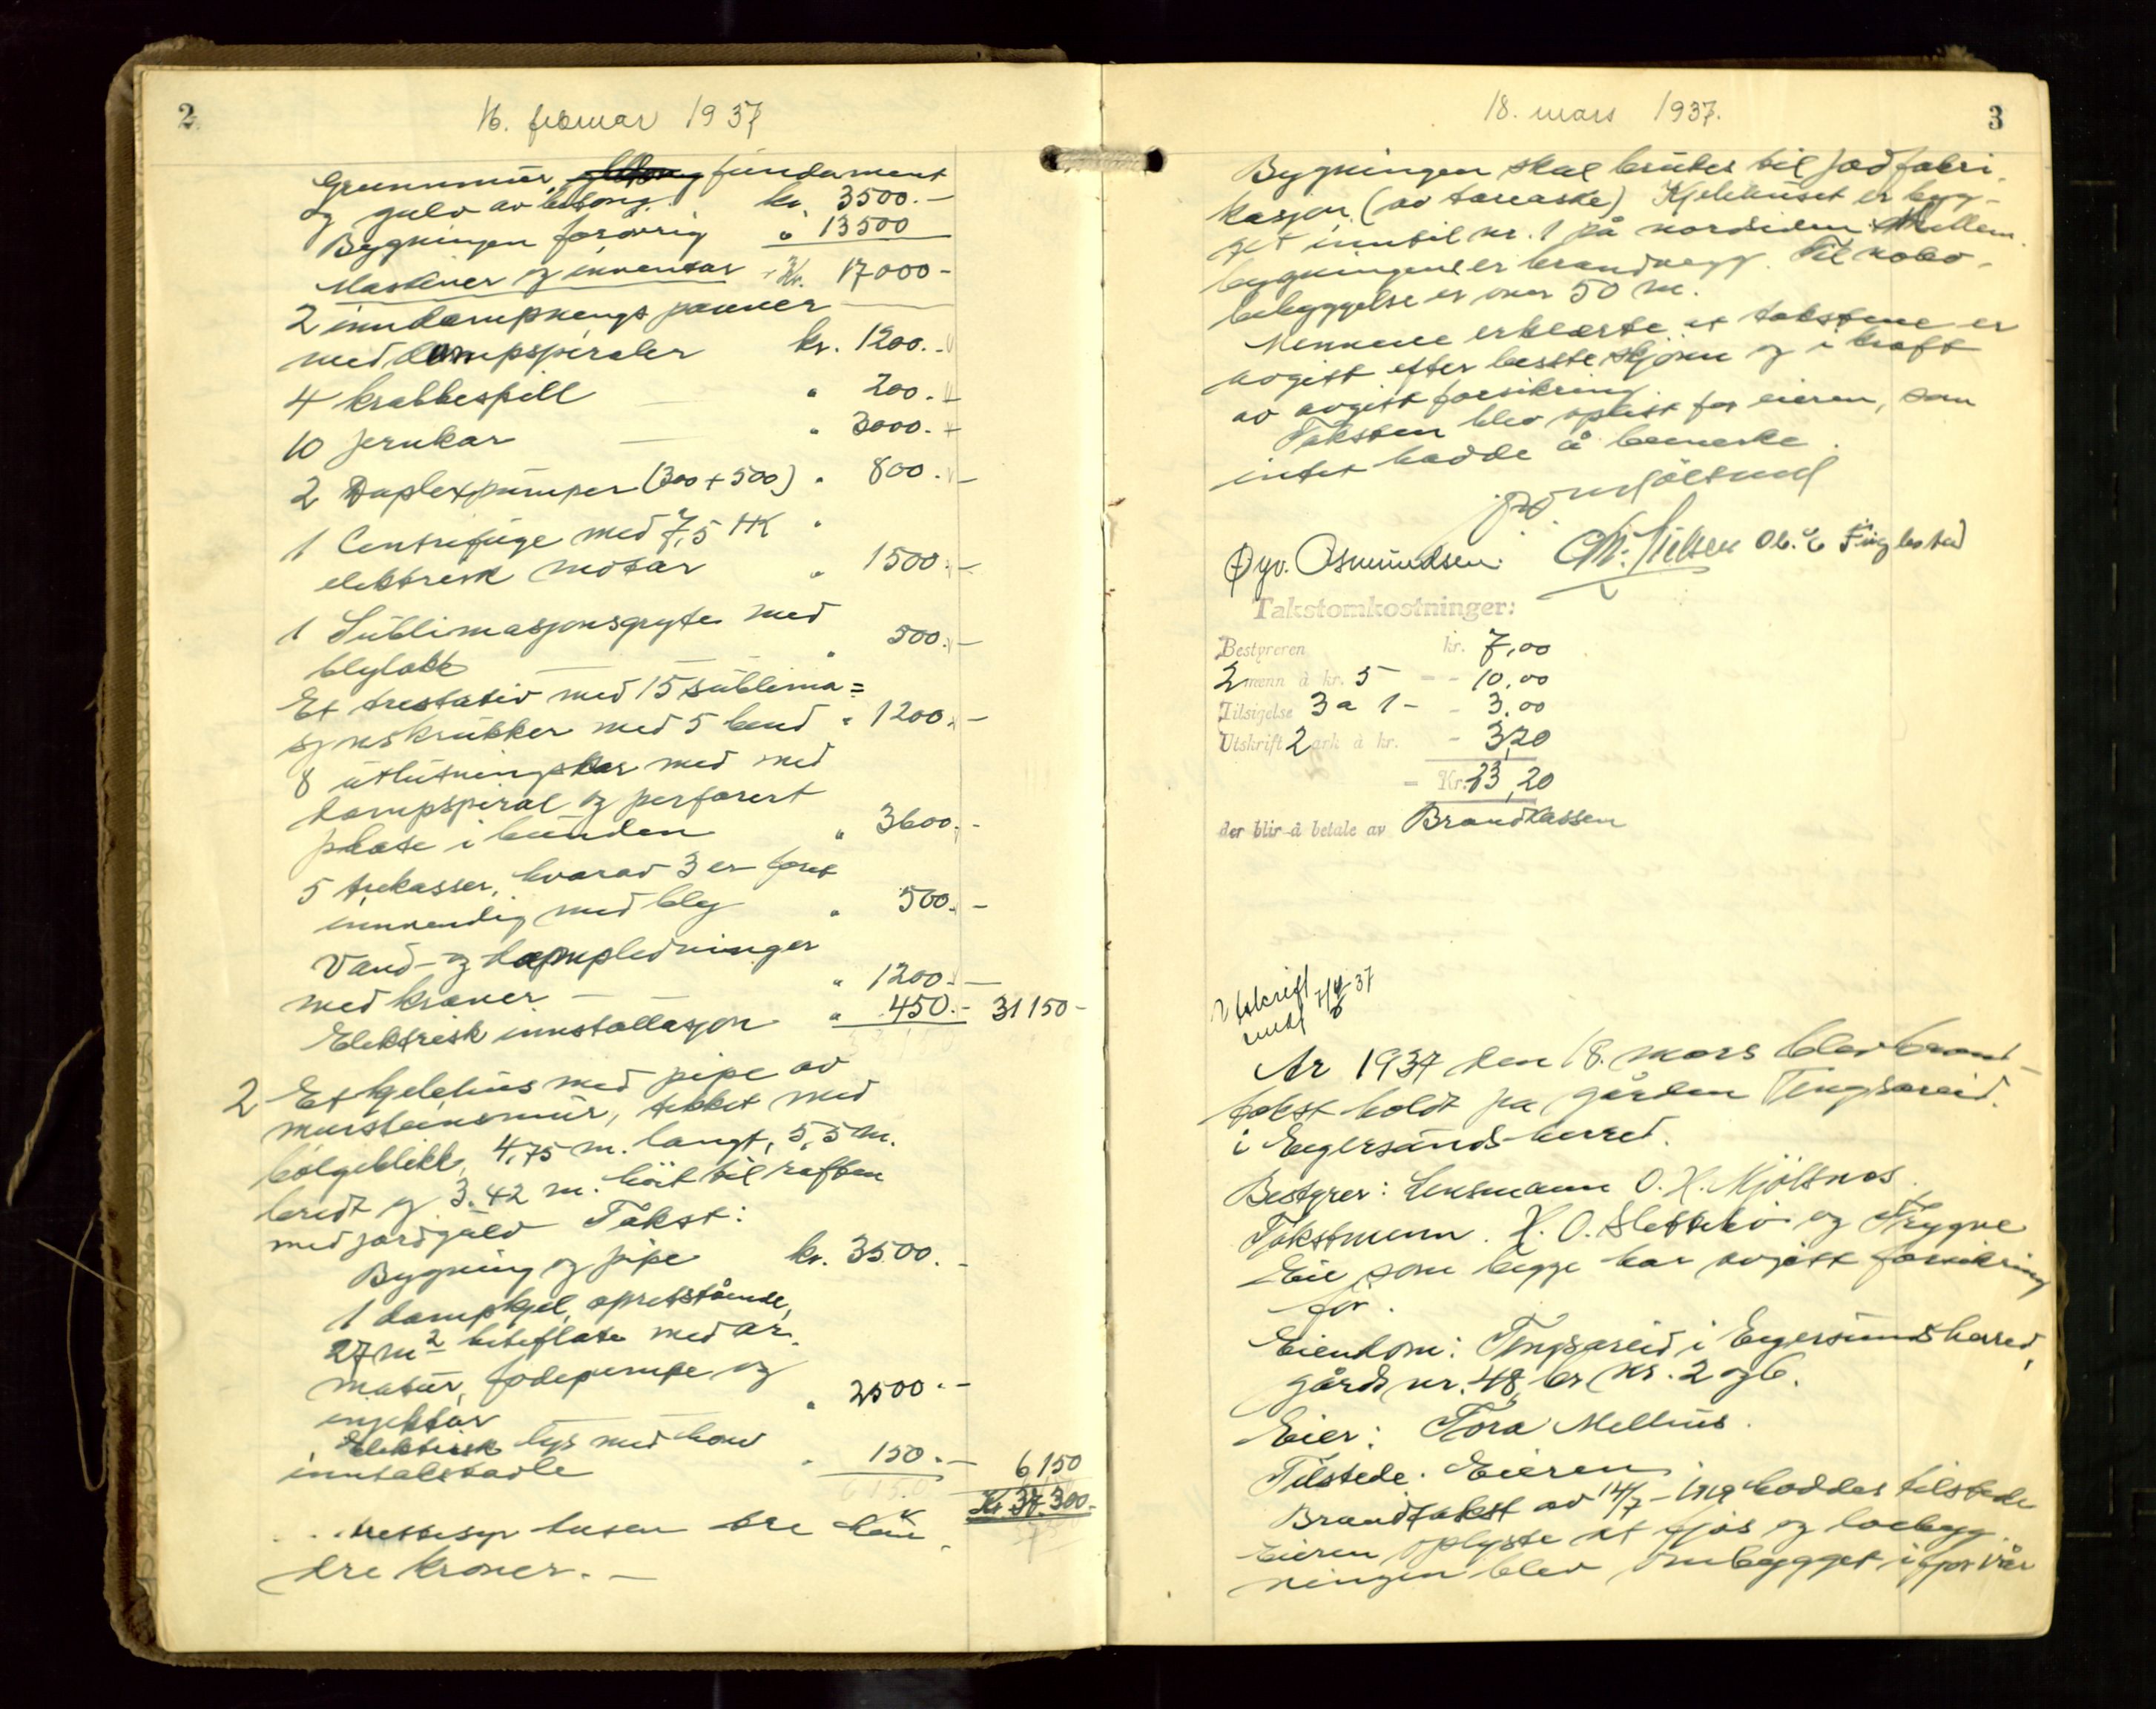 2
16. februar 1937
Grunnmur, fundament
og gulv av betong. kr. 3500.-
Bygningen forøvrig " 13500
Maskiner og inventar Kr. 17000-
2 inndampnengs panner
med dampspiraler kr. 1200.-
4 krabbespill " 200.-
10 jernkar " 3000.-
2 Duplexpumper (300+500) " 800.-
1 Centrifuge med 7,5 HK "
elektrisk motor " 1500.-
1 Sublimasjonsgryte med
blylokk " 500.-
Et trestativ med 15 sublima=
sjonskrukker med 5 bend " 1200.-
8 utlutningskar med med
dampspiral og perforert
plate i bunden " 3600.-
5 trekasser, hvorav 3 er foret
innvendig med bly " 500.-
Vand- og dampledninger
med kraner - " 1200.-
Elektrisk innstallasjon " 450.- 31150-
2 Et kjelehus med pipe av
mursteinsmur, tekket med
bølgeblikk, 4,75 m. langt, 5,5 m.
bredt og 3.42 m. høit til raften
med jordgulv Takst:
Bygning og pipe kr. 3500.-
1 dampkjel, opretstående,
27 m2 heteflate med ar-
matur, fødepumpe og
injektor " 2500.-
Elektrisk lys med hoved
inntakstavle " 150.- 6150
Kr. 37300.-
- trettesyv tusen tre hun-
dre kroner. -
18. mars 1937.
3
Bygningen skal brukes til jodfabri-
kasjon (av tareaske) Kjelehuset er byg-
get inntil nr. 1 på nordsiden. Mellem
bygningene er brandvegg. Til nabo-
bebyggelse er over 50 m.
Mennene erklærte at takstene er
avgitt efter beste skjønn og i kraft
av avgitt forsikring.
Taksten blev oplest for eieren, som
intet hadde å bemerke.
Øyv. Osmundsen. Chr. Nielsen
Takstomkostninger:
Bestyreren kr. 7,00
2 menn à kr. 5 - - 10,00
Tilsigelse 3 a 1 - - 3,00
Utskrift 2 ark à kr. - 3,20
- Kr. 23,20
der blir å betale av Brandkassen
Utskrift
sendt 7/4-37
År 1937 den 18. mars blev brand-
takst holdt på gården Tengsareid.
i Eegersunds herred.
Bestyrer: Lensmann O. H. Mjølsnes.
Takstmenn. H. O. Slettebø og Trygve
Eie, som begge har avgitt forsikring
før.
Eiendom: Tengsareid i Eegersunds herred,
gårds nr. 48, br nr. 2 og 6.
Eier: Tora Mellhus.
Tilstede: Eieren
Brandtakst av 14/7-1919 haddes tilstede
Eieren oplyste at fjøs og løebyg-
ningen blev ombygget i fjor vår